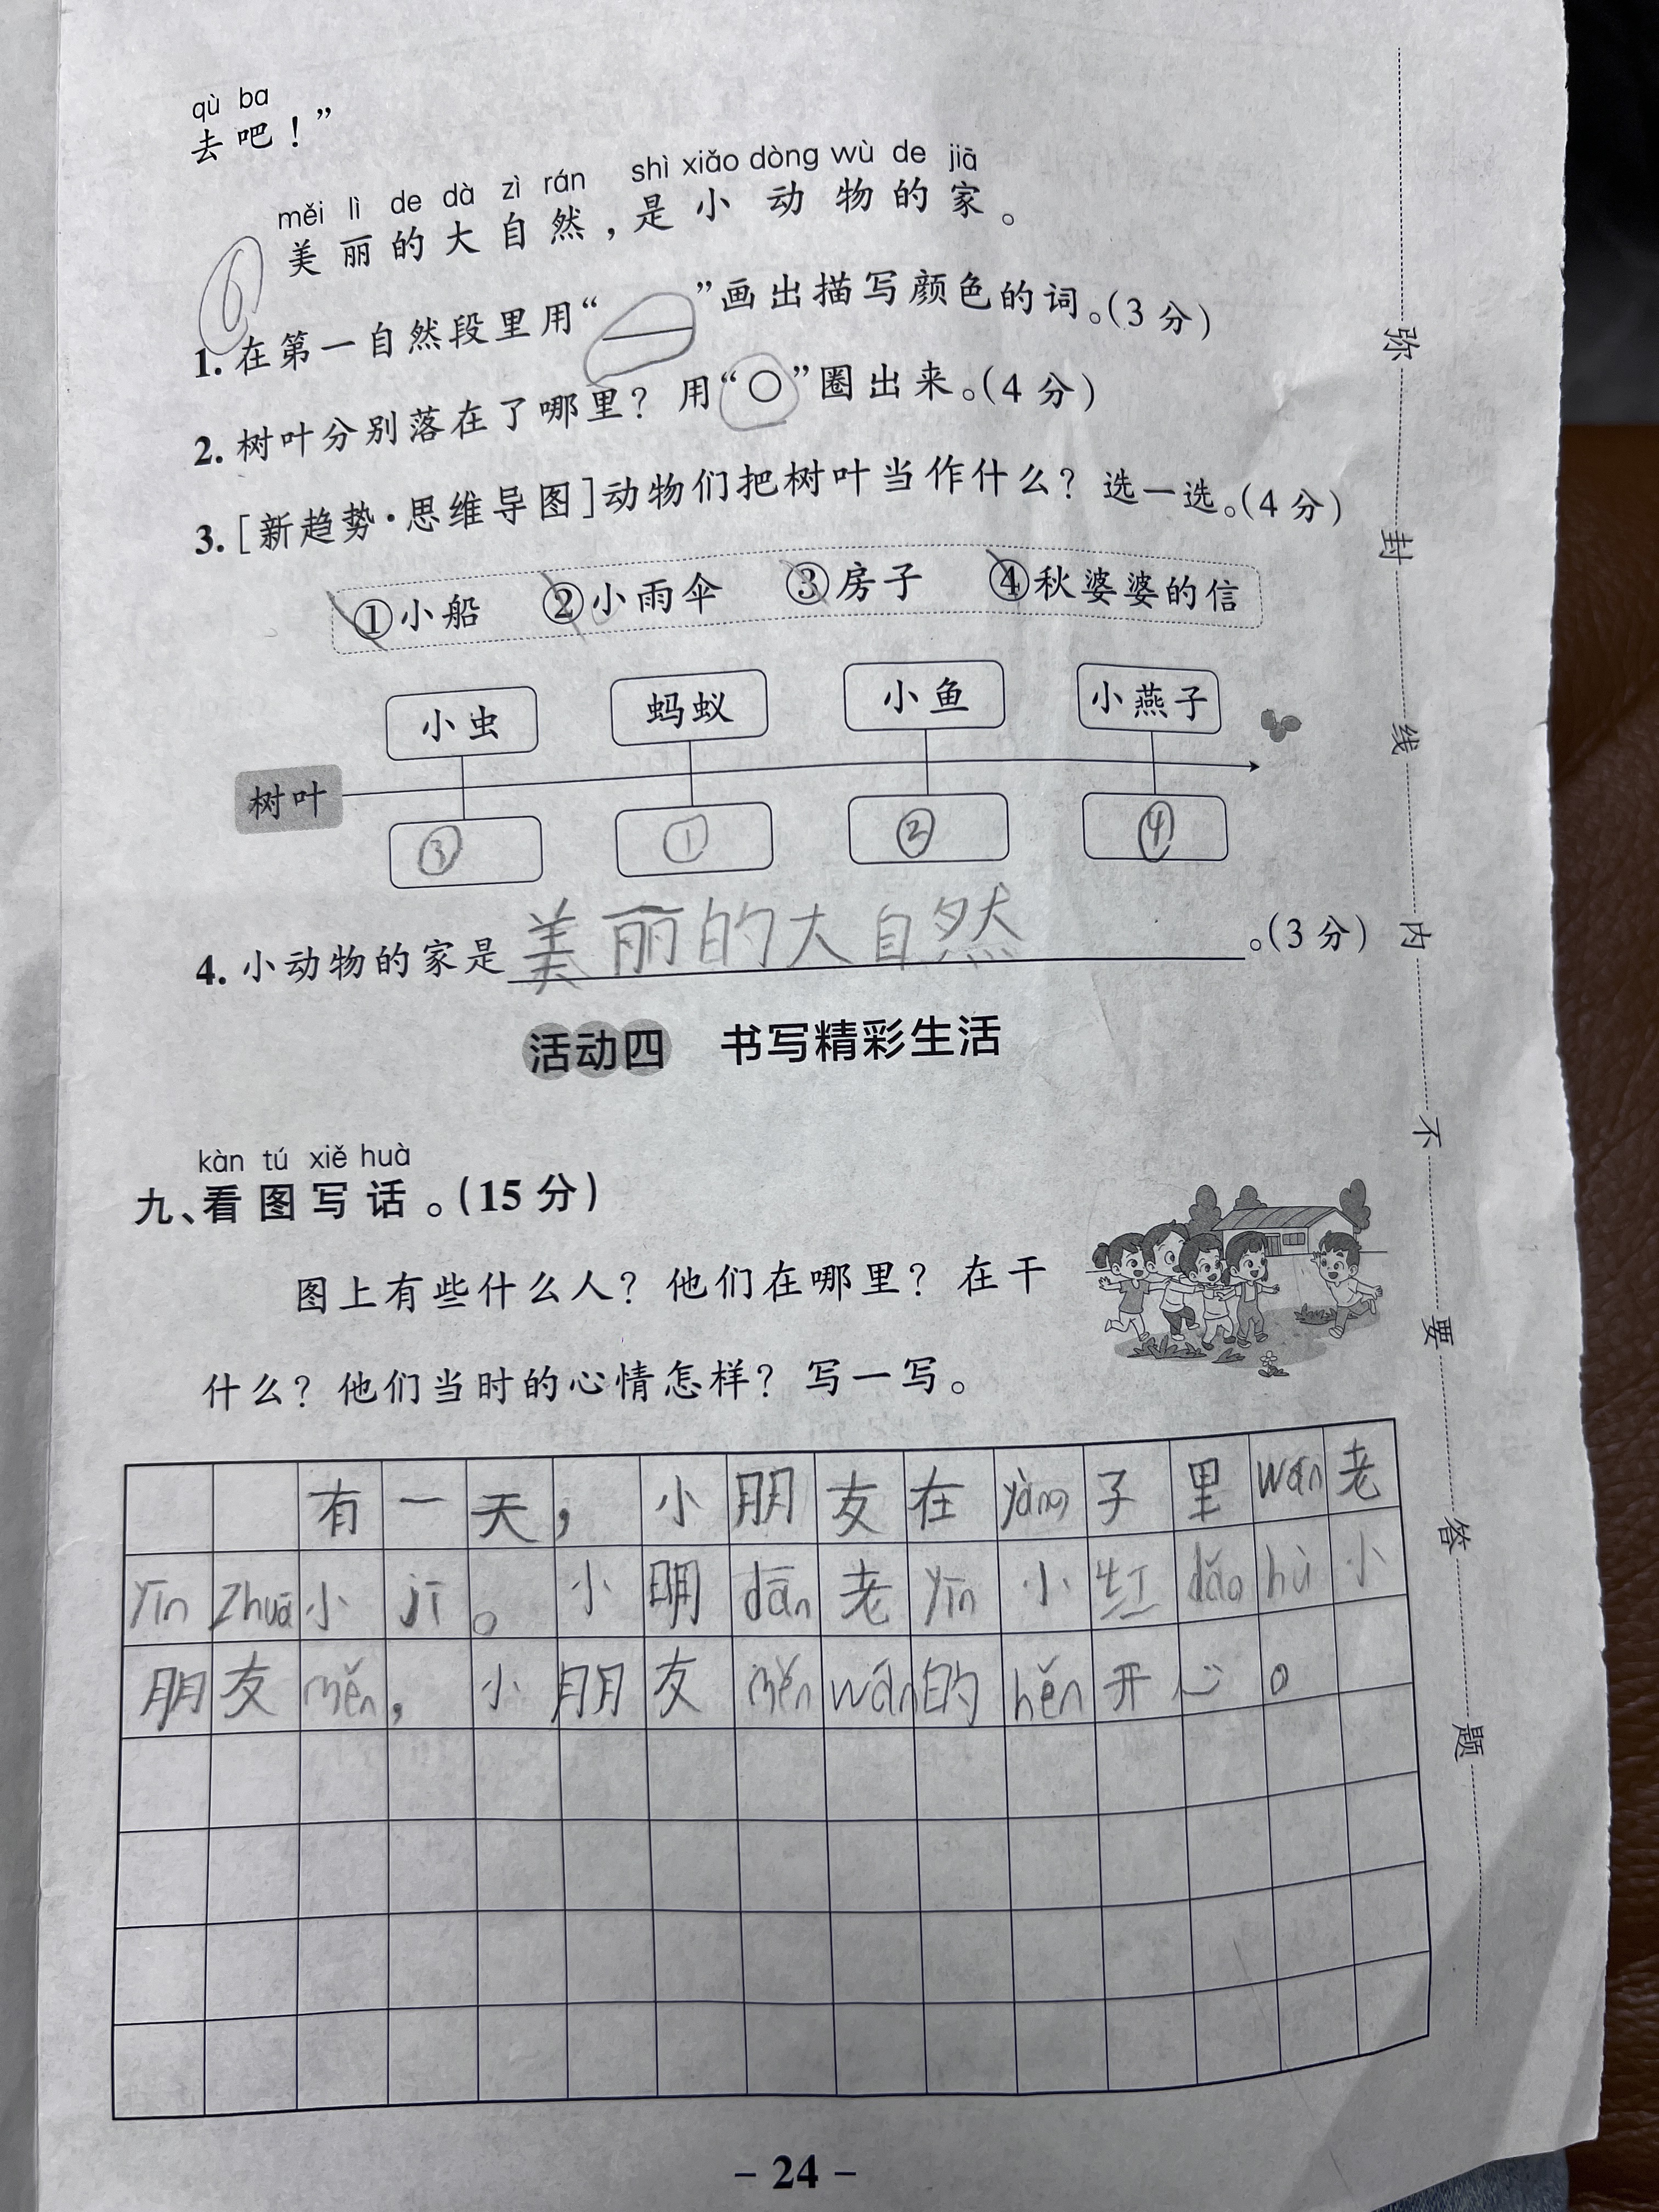 qù ba
去吧！”
měi lì de dà zì rán shì xiǎo dòng wù de jiā
美丽的大自然，是小动物的家。
⑥
1. 在第一自然段里用“——”画出描写颜色的词。(3 分)
2. 树叶分别落在了哪里？用“○”圈出来。(4 分)
3. [新趋势·思维导图]动物们把树叶当作什么？选一选。(4 分)
①小船 ②小雨伞 ③房子 ④秋婆婆的信
小虫 蚂蚁 小鱼 小燕子
树叶
③ ① ② ④
4. 小动物的家是美丽的大自然。(3 分)
活动四 书写精彩生活
kàn tú xiě huà
九、看图写话。(15 分)
图上有些什么人？他们在哪里？在干
什么？他们当时的心情怎样？写一写。
有一天，小朋友在yàng子里wán老
yīn zhuā小jī。小明dān老yīn小红dǎo hù小
朋友měn，小朋友měn wán的hěn开心。
– 24 –
弥封线内不要答题